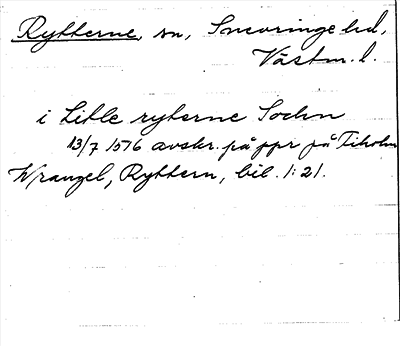 Rytterne, sn, Snevringe hd,
Västm. l.
i Litle ryterne Sochn
13/7 1576 avskr. på ppr på Tiholm
Wrangel, Ryttern, bil. 1:21.